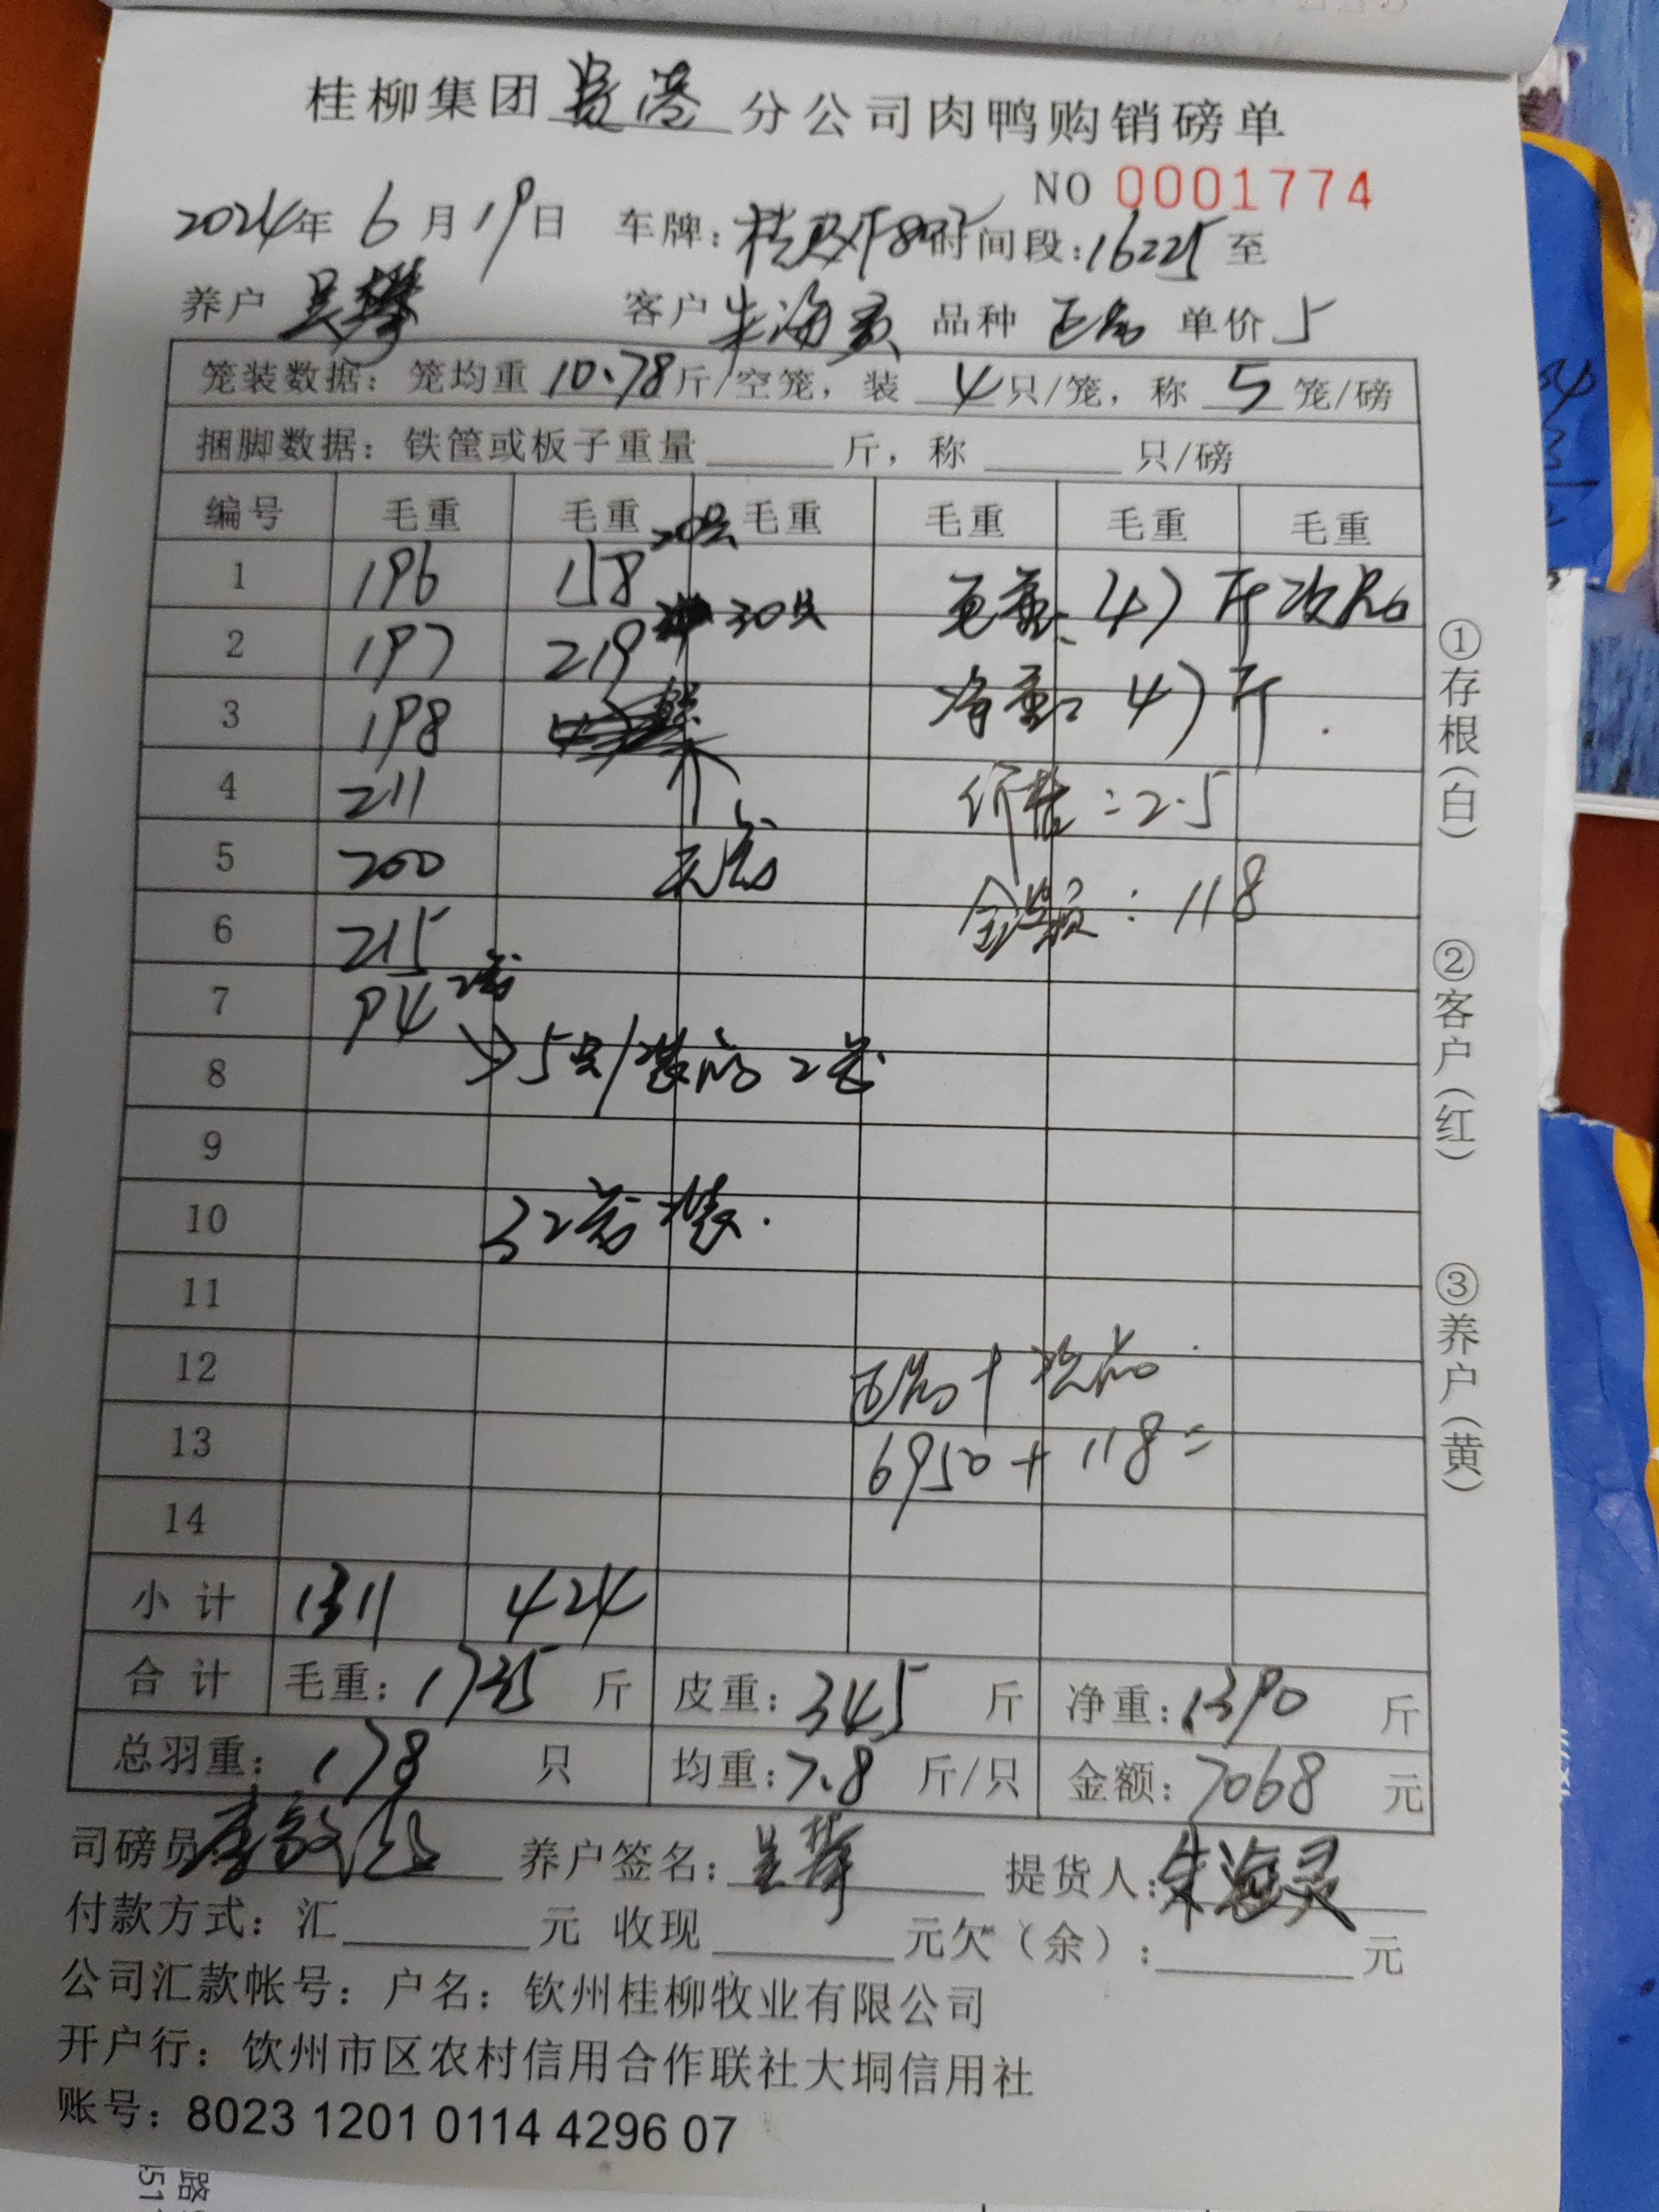 桂柳集团贵港分公司肉鸭购销磅单
NO 0001774
2024年6月19日 车牌: 时间段:16225至
养户 吴攀 客户 朱海灵 品种 正品 单价 5
笼装数据:笼均重 10.78斤/空笼,装 4只/笼,称 5 笼/磅
捆脚数据:铁筐或板子重量 斤,称 只/磅
编号 毛重 毛重 毛重 毛重 毛重 毛重
1 196 158 20只 毛重:47斤次品
2 197 219 30只 净重:47斤.
3 198
4 211 价格:2.5
5 200 无笼 金额:118
6 215
7 94 2笼
8 5只/装的2笼
9
10 32笼装.
11
12 正品+次品
13 6950+118=
14
小计 1311 424
合计 毛重:1735斤 皮重:345斤 净重:1390斤
总羽重:178只 均重:7.8斤/只 金额:7068元
司磅员 养户签名:吴攀 提货人:朱海灵
付款方式:汇 元 收现 元欠(余): 元
公司汇款帐号:户名:钦州桂柳牧业有限公司
开户行:饮州市区农村信用合作联社大垌信用社
账号:8023 1201 0114 4296 07
①存根(白)
②客户(红)
③养户(黄)